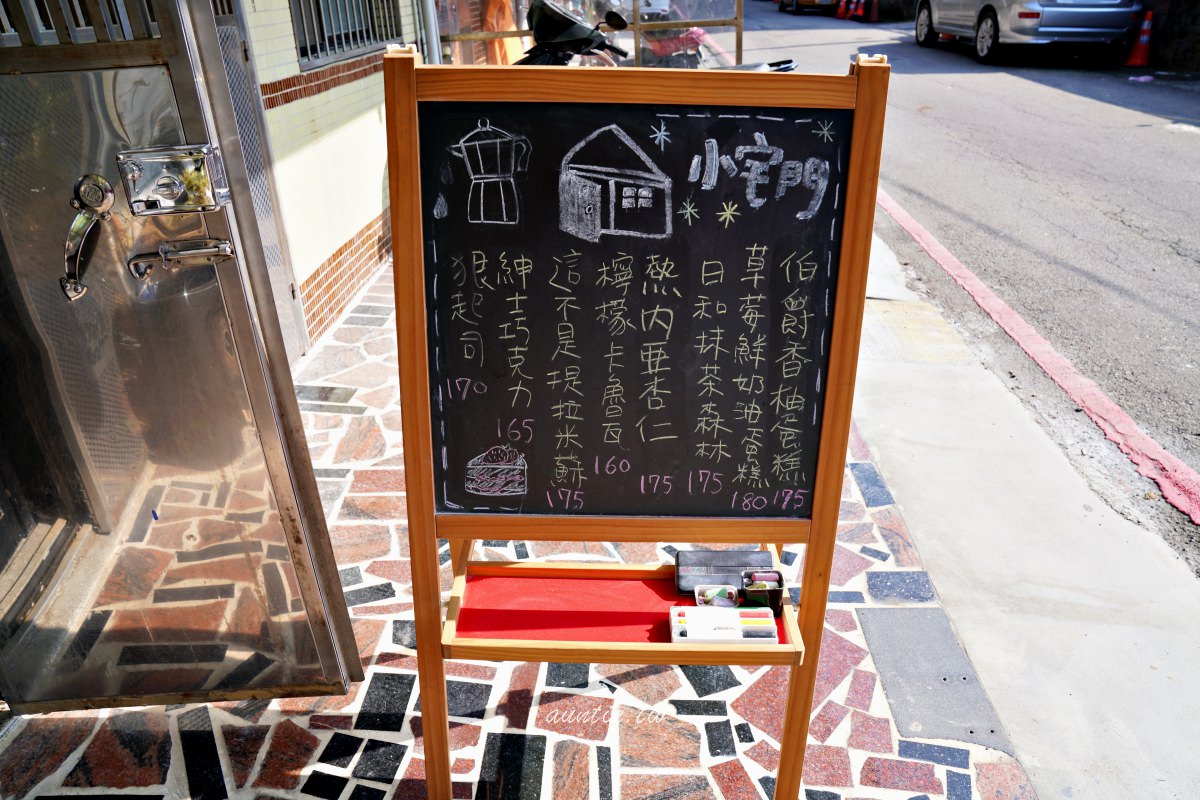 小宅門
伯爵香柚蛋糕
175
草莓鮮奶油蛋糕
180
日和抹茶森林
175
熱內亜杏仁
175
檸檬卡魯瓦
160
這不是提拉米蘇
175
紳士巧克力
165
狠起司
170
auntie.tw